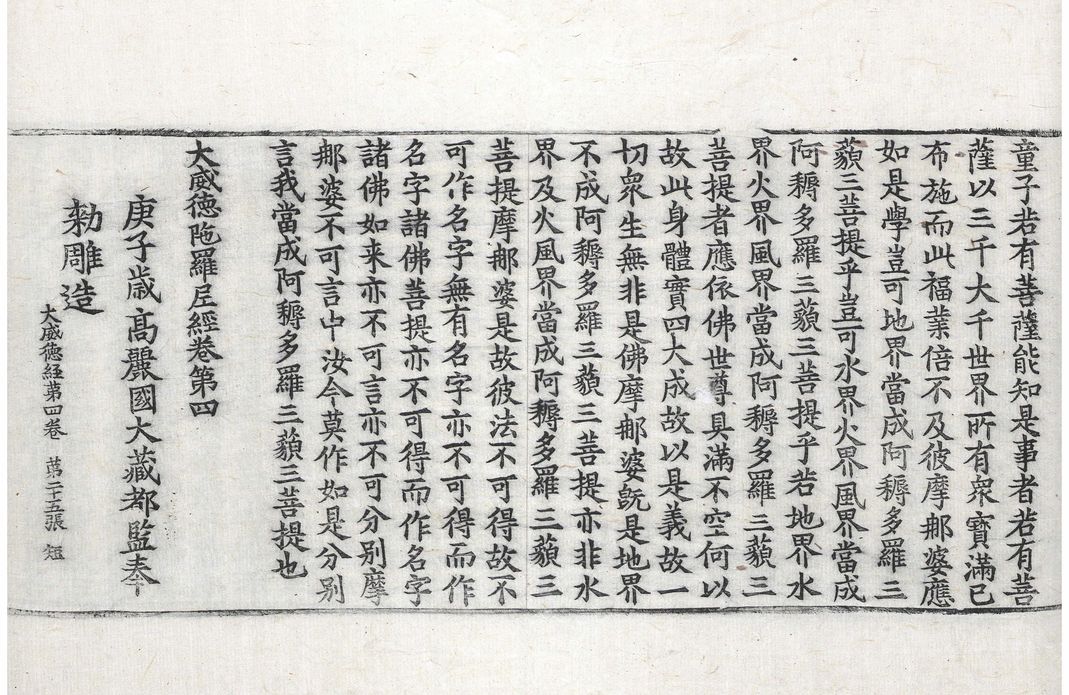 童子若有菩薩能知是事者若有菩
薩以三千大千世界所有衆寶滿已
布施而此福業倍不及彼摩那婆應
如是學豈可地界當成阿耨多羅三
藐三菩提乎豈可水界火界風界當成
阿耨多羅三藐三菩提乎若地界水
界火界風界當成阿耨多羅三藐三
菩提者應依佛世尊具滿不空何以
故此身體實四大成故以是義故一
切衆生無非是佛摩那婆旣是地界
不成阿耨多羅三藐三菩提亦非水
界及火風界當成阿耨多羅三藐三
菩提摩那婆是故彼法不可得故不
可作名字無有名字亦不可得而作
名字諸佛菩提亦不可得而作名字
諸佛如来亦不可言亦不可分别摩
那婆不可言中汝今莫作如是分别
言我當成阿耨多羅三藐三菩提也
大威德陁羅尼經卷第四
庚子歳髙麗國大藏都監奉
勑雕造
大威德経第四卷 苐二十五張 短